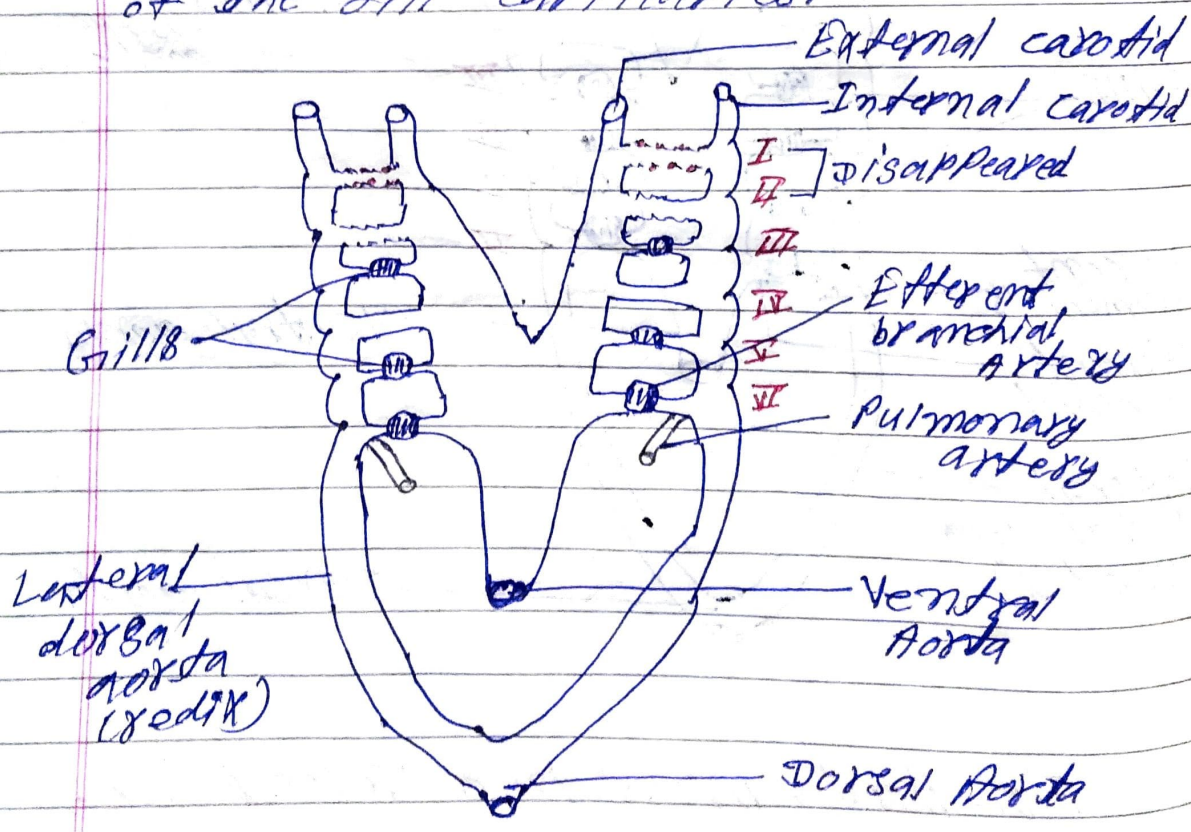 of the Gill
External carotid
Internal carotid
I
II
Disappeared
III
IV
Efferent
branchial
Artery
V
VI
Gills
Pulmonary
artery
Lateral
dorsal
aorta
(redix)
Ventral
Aorta
Dorsal Aorta